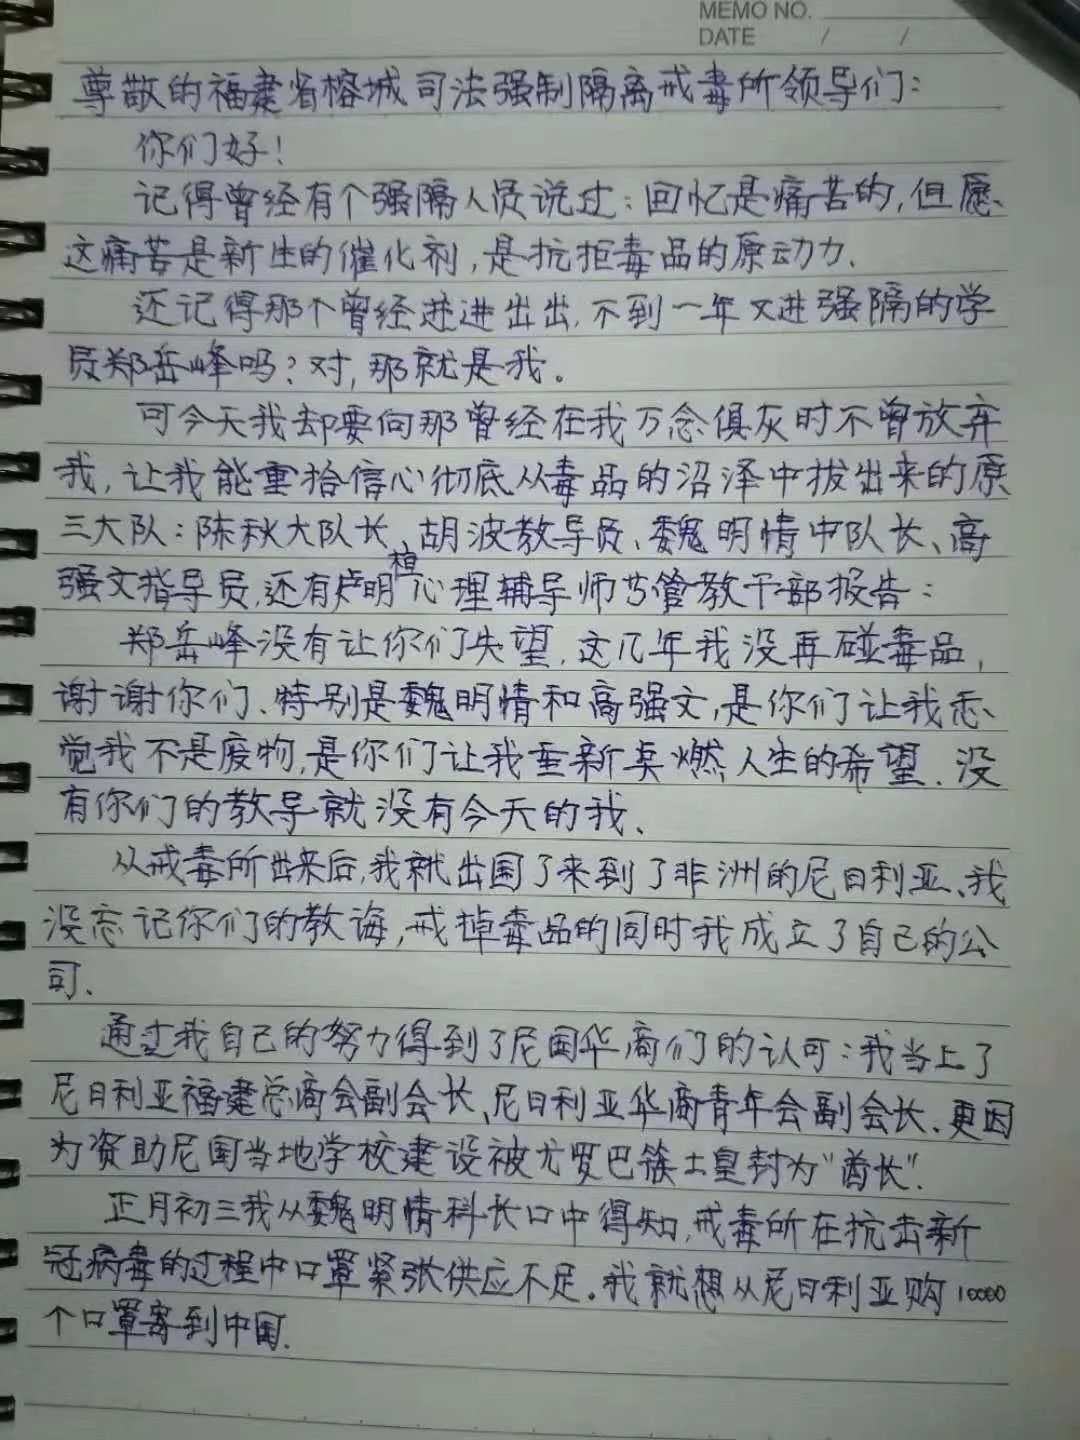 MEMO NO.
DATE / /
尊敬的福建省榕城司法强制隔离戒毒所领导们:
你们好!
记得曾经有个强隔人员说过:回忆是痛苦的,但愿
这痛苦是新生的催化剂,是抗拒毒品的原动力.
还记得那个曾经进进出出,不到一年又进强隔的学
员郑岳峰吗?对,那就是我。
可今天我却要向那曾经在我万念俱灰时不曾放弃
我,让我能重拾信心彻底从毒品的沼泽中拔出来的原
三大队:陈秋大队长、胡波教导员、魏明情中队长、高
强文指导员,还有卢明桓心理辅导师等管教干部报告:
郑岳峰没有让你们失望,这几年我没再碰毒品,
谢谢你们、特别是魏明情和高强文,是你们让我感
觉我不是废物,是你们让我重新点燃人生的希望.没
有你们的教导就没有今天的我、
从戒毒所出来后,我就出国了来到了非洲的尼日利亚、我
没忘记你们的教诲,戒掉毒品的同时我成立了自己的公
司、
通过我自己的努力得到了尼国华商们的认可:我当上了
尼日利亚福建总商会副会长、尼日利亚华商青年会副会长、更因
为资助尼国当地学校建设被尤罗巴族土皇封为"酋长".
正月初三我从魏明情科长口中得知,戒毒所在抗击新
冠病毒的过程中口罩紧张供应不足。我就想从尼日利亚购10000
个口罩寄到中国.